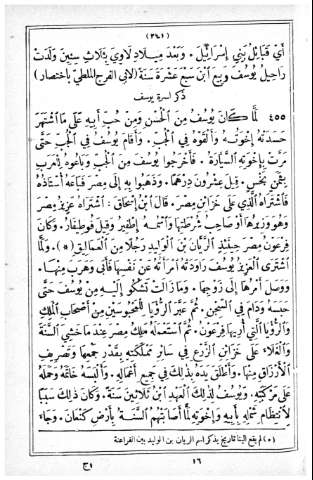 (٢٤١)
أَيْ قَبَائِلُ بَنِي إِسْرَائِيلَ. وَبَعْدَ مِيلَادِ لَاوِي بِثَلَاثِ سِنِينَ وَلَدَتْ
رَاحِيلُ يُوسُفَ وَبِيعَ ٱبْنَ سَبْعَ عَشْرَةَ سَنَةً (لابي الفرج الملطي باختصار)
ذكر اسرة يوسف
٤٥٥ لَمَّا كَانَ يُوسُفُ مِنَ الْحُسْنِ وَمِنْ حُبِّ أَبِيهِ عَلَى مَا ٱشْتَهَرَ
حَسَدَتْهُ إِخْوَتُهُ وَأَلْقَوْهُ فِي الْجُبِّ. وَأَقَامَ يُوسُفُ فِي الْجُبِّ حَتَّى
مَرَّتْ بِإِخْوَتِهِ السَّيَّارَةُ. فَأَخْرَجُوا يُوسُفَ مِنَ الْجُبِّ وَبَاعُوهُ لِلْعَرَبِ
بِثَمَنٍ بَخْسٍ. قِيلَ عِشْرُونَ دِرْهَمًا. وَذَهَبُوا بِهِ إِلَى مِصْرَ فَبَاعَهُ أُسْتَاذُهُ
فَٱشْتَرَاهُ الَّذِي عَلَى خَزَائِنِ مِصْرَ. قَالَ ٱبْنُ إِسْحَاقَ: ٱشْتَرَاهُ عَزِيزُ مِصْرَ
وَهُوَ وَزِيرُهَا أَوْ صَاحِبُ شُرْطَتِهَا وَٱسْمُهُ إِطْفِيرُ وَقِيلَ قُوطِيفَارُ. وَكَانَ
فِرْعَوْنُ مِصْرَ حِينَئِذٍ الرَّيَّانَ بْنَ الْوَلِيدِ رَجُلًا مِنَ الْعَمَالِيقِ (*). وَلَمَّا
ٱشْتَرَى الْعَزِيزُ يُوسُفَ رَاوَدَتْهُ ٱمْرَأَتُهُ عَنْ نَفْسِهَا فَأَبَى وَهَرَبَ مِنْهَا.
وَوَصَلَ أَمْرُهَا إِلَى زَوْجِهَا. وَمَا زَالَتْ تَشْكُو إِلَيْهِ مِنْ يُوسُفَ حَتَّى
حَبَسَهُ وَدَامَ فِي السِّجْنِ. ثُمَّ عَبَّرَ الرُّؤْيَا لِلْمَحْبُوسِينَ مِنْ أَصْحَابِ الْمَلِكِ
وَالرُّؤْيَا الَّتِي أُرِيهَا فِرْعَوْنُ. ثُمَّ ٱسْتَعْمَلَهُ مَلِكُ مِصْرَ عِنْدَ مَا خَشِيَ السَّنَةَ
وَالْغَلَاءَ عَلَى خَزَائِنِ الزَّرْعِ فِي سَائِرِ مَمْلَكَتِهِ يُقَدِّرُ جَمْعَهَا وَتَصْرِيفَ
الْأَرْزَاقِ مِنْهَا. وَأَطْلَقَ يَدَهُ بِذٰلِكَ فِي جَمِيعِ أَعْمَالِهِ. وَأَلْبَسَهُ خَاتَمَهُ وَحَمَلَهُ
عَلَى مَرْكَبِهِ. وَيُوسُفُ لِذٰلِكَ الْعَهْدِ ٱبْنُ ثَلَاثِينَ سَنَةً. وَكَانَ ذٰلِكَ سَبَبًا
لِٱنْتِظَامِ شَمْلِهِ بِأَبِيهِ وَإِخْوَتِهِ لَمَّا أَصَابَتْهُمُ السَّنَةُ بِأَرْضِ كَنْعَانَ. وَجَاءَ
(*) لم يقع الينا تاريخ يذكر اسم الريان بن الوليد بين الفراعنة
١٦ ج١